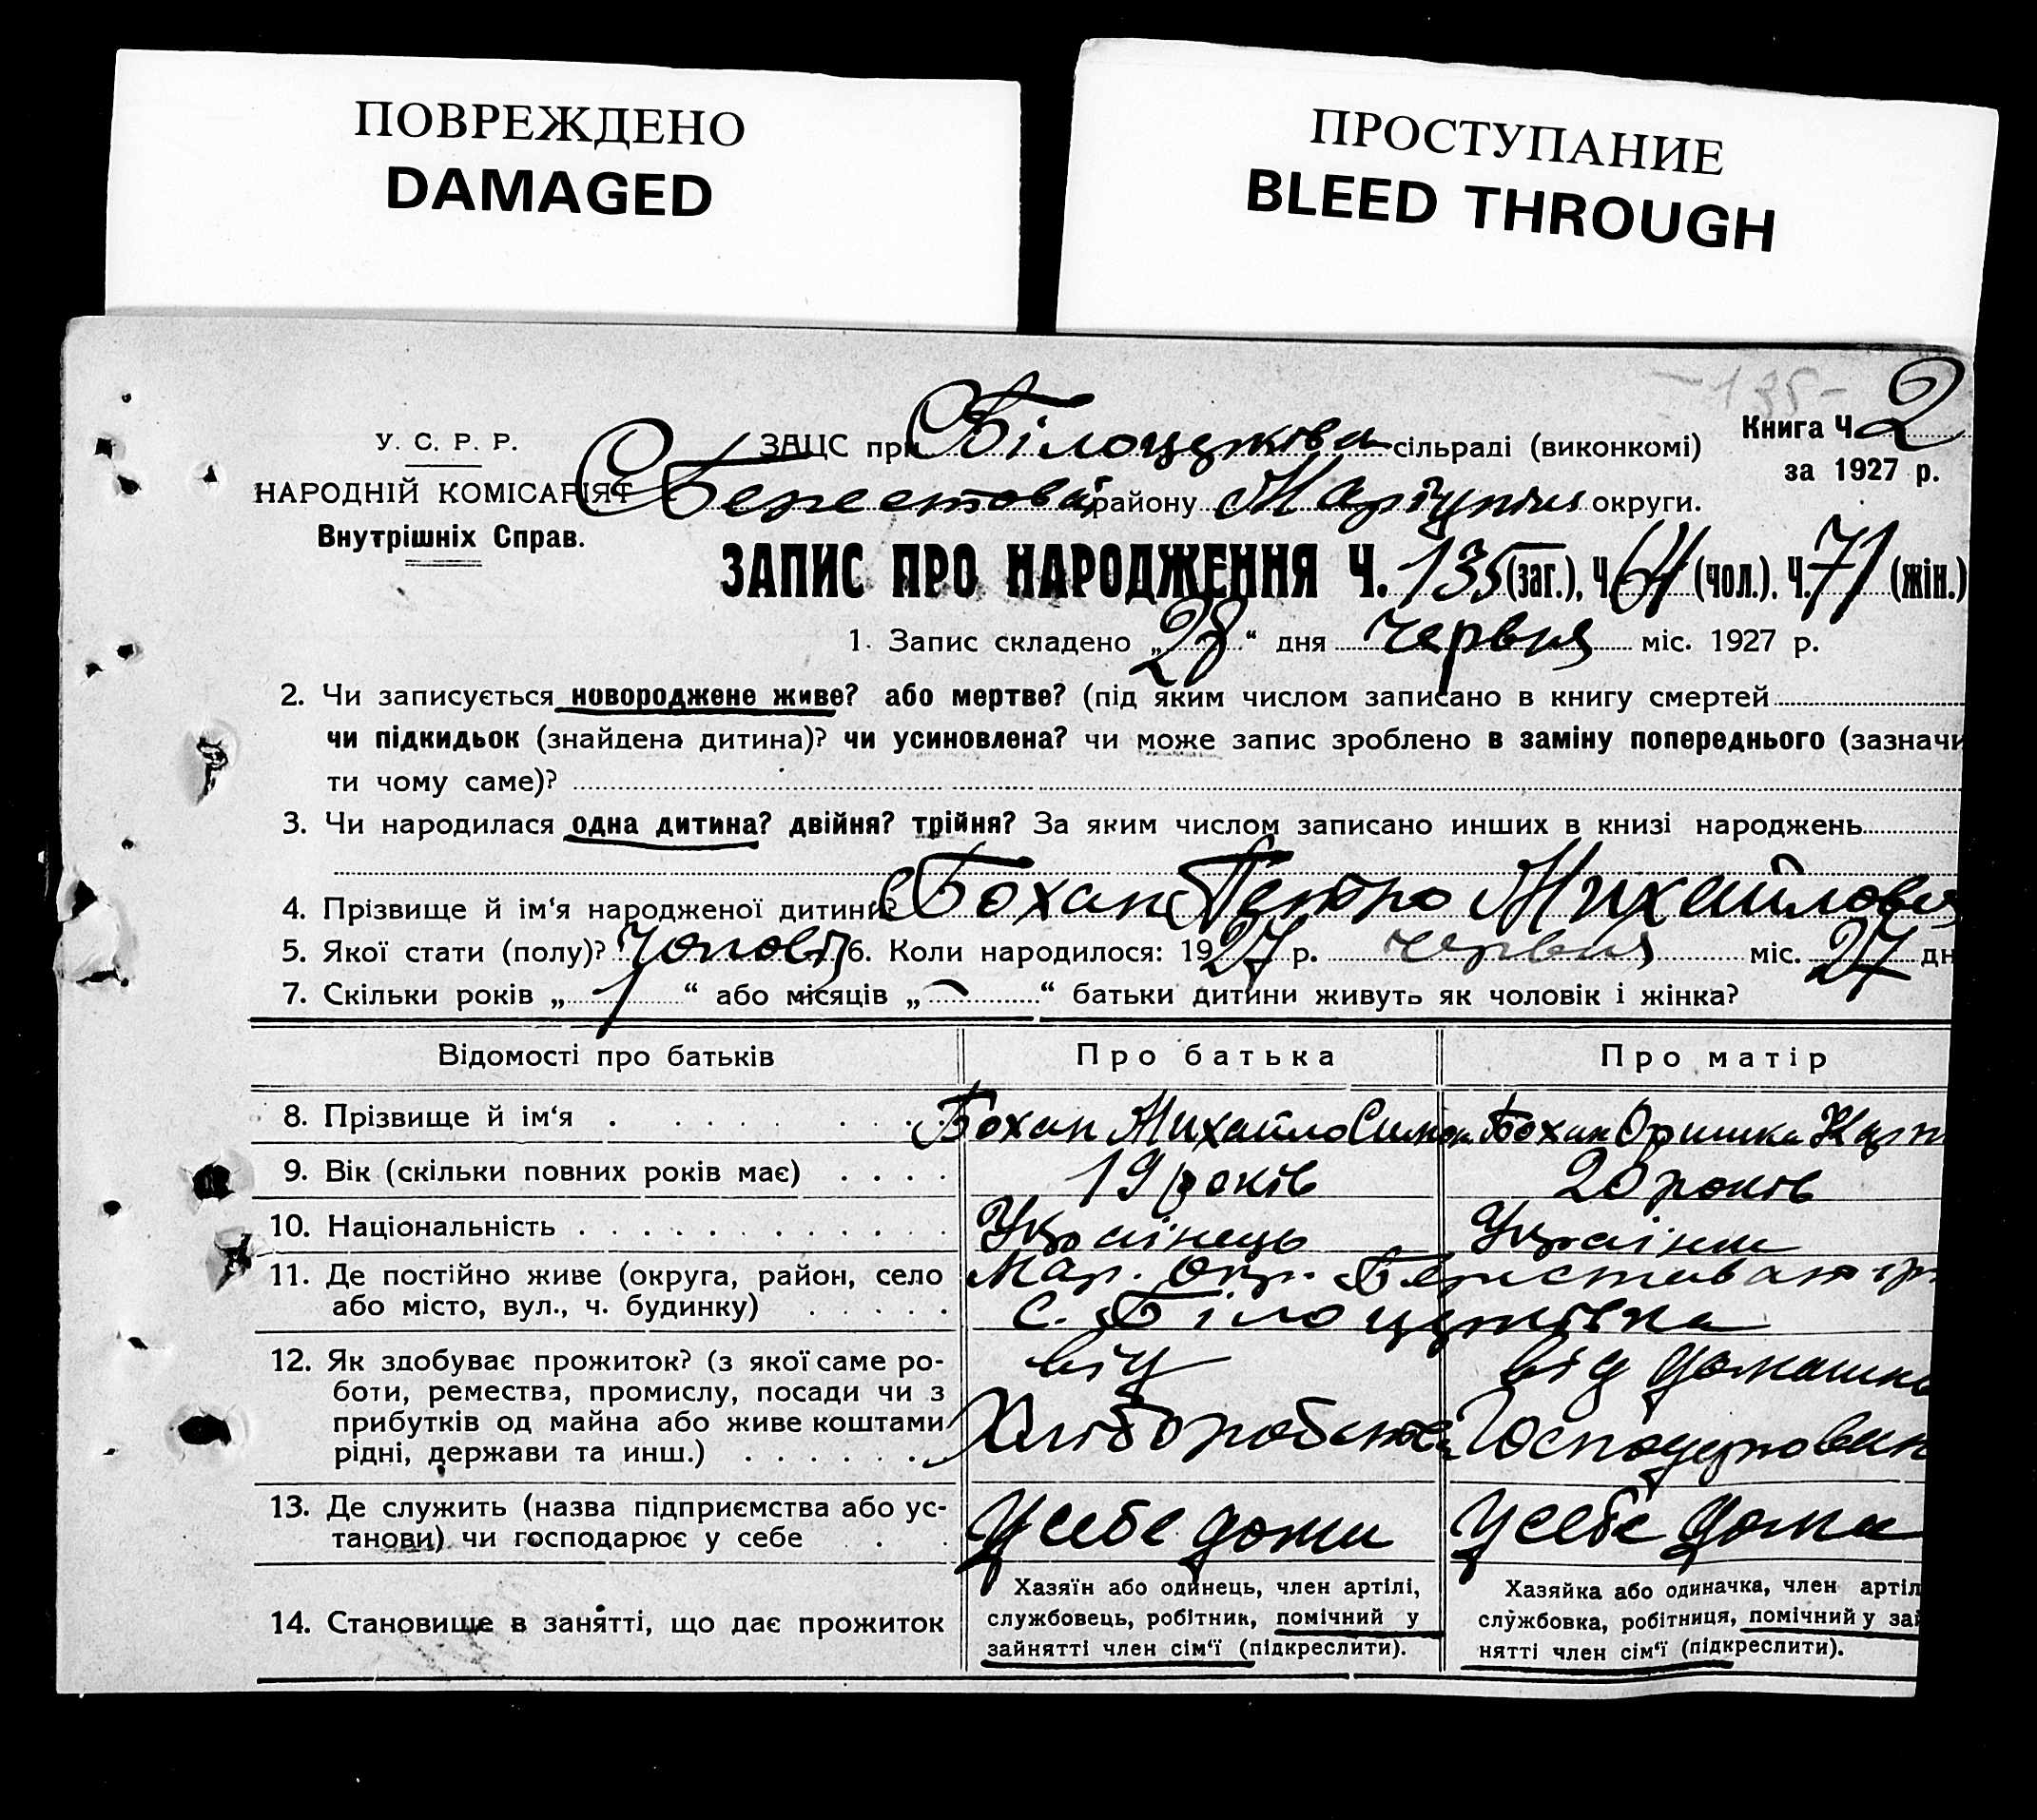 ПОВРЕЖДЕНО
DAMAGED
ПРОСТУПАНИЕ
BLEED THROUGH
-135-
У. С. Р. Р.
НАРОДНІЙ КОМІСАРІЯТ
Внутрішніх Справ.
ЗАЦС при сільраді (виконкомі)
Книга Ч. 2
за 1927 р.
району округи.
ЗАПИС ПРО НАРОДЖЕННЯ Ч. 135 (заг.), Ч. 64 (чол.). Ч. 71 (жін.)
1. Запис складено „28“ дня червня міс. 1927 р.
2. Чи записується новороджене живе? або мертве? (під яким числом записано в книгу смертей
чи підкидьок (знайдена дитина)? чи усиновлена? чи може запис зроблено в заміну попереднього (зазначи
ти чому саме)?
3. Чи народилася одна дитина? двійня? трійня? За яким числом записано инших в книзі народжень
4. Прізвище й ім‘я народженої дитини? Бохан Петро Михайлович
5. Якої стати (полу)? 6. Коли народилося: 1927 р. червня міс. 27 дн
7. Скільки років „1“ або місяців „-“ батьки дитини живуть як чоловік і жінка?
Відомості про батьків Про батька Про матір
8. Прізвище й ім‘я Бохан Михайло Бохан Оришка
9. Вік (скільки повних років має) 19 років 20 років
10. Національність Українець Українка
11. Де постійно живе (округа, район, село Мар. окр.
або місто, вул., ч. будинку) с. Білоцерківка
12. Як здобуває прожиток? (з якої саме ро- від від домашнь
боти, ремества, промислу, посади чи з
прибутків од майна або живе коштами Хліборобства Господарован
рідні, держави та инш.)
13. Де служить (назва підприємства або ус- У себе дома У себе дома
танови) чи господарює у себе
Хазяїн або одинець, член артілі, Хазяйка або одиначка, член артіл
14. Становище в занятті, що дає прожиток службовець, робітник, помічний у службовка, робітниця, помічний у зай
зайнятті член сім‘ї (підкреслити). нятті член сім‘ї (підкреслити).